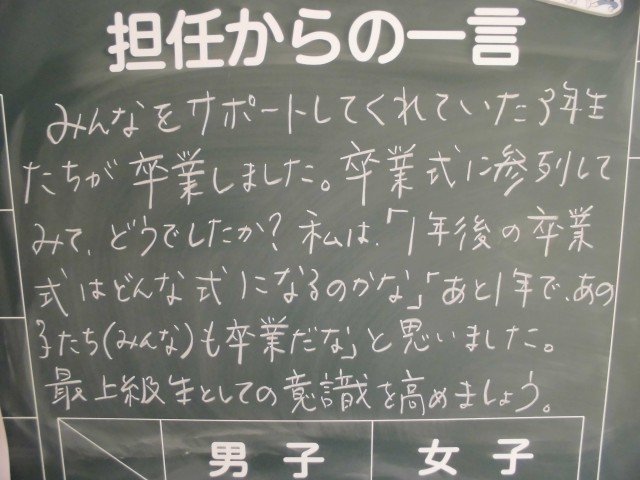 担任からの一言
みんなをサポートしてくれていた3年生
たちが卒業しました。卒業式に参列して
みて、どうでしたか?私は、「1年後の卒業
式はどんな式になるのかな」「あと1年で、あの
子たち(みんな)も卒業だな」と思いました。
最上級生としての意識を高めましょう。
男子 女子